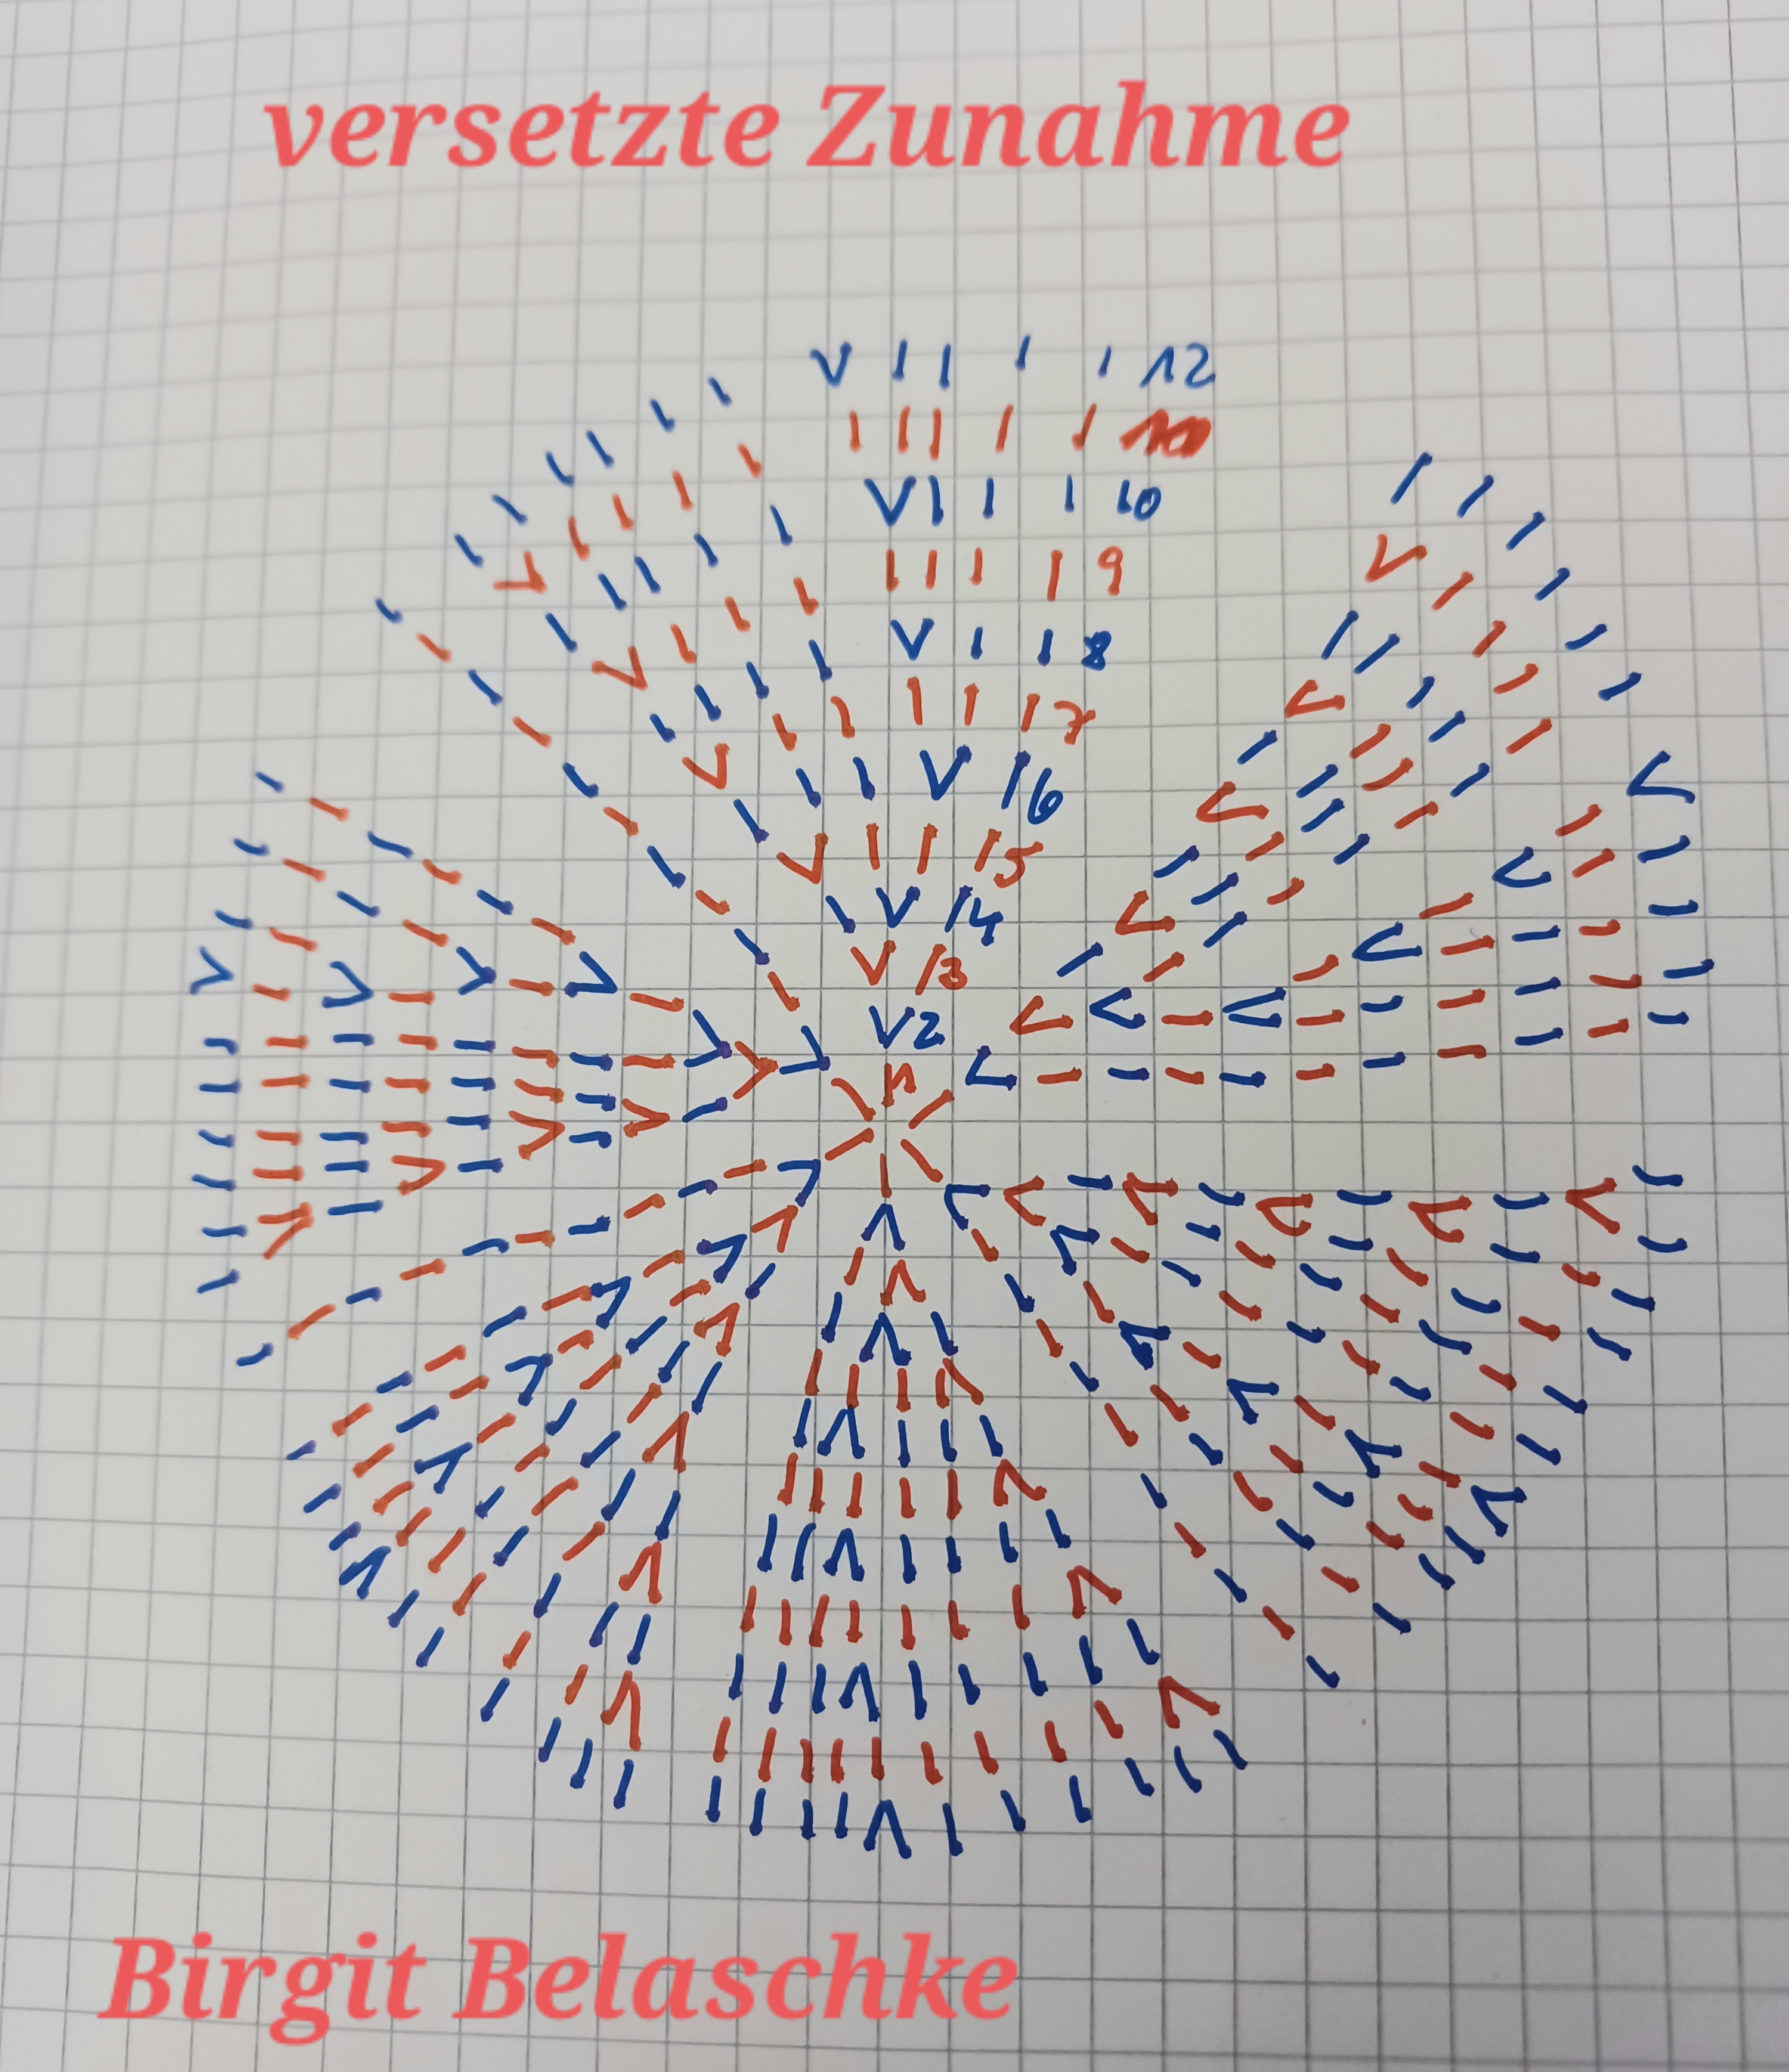 versetzte Zunahme
12
10
9
8
7
6
5
4
3
2
1
Birgit Belaschke